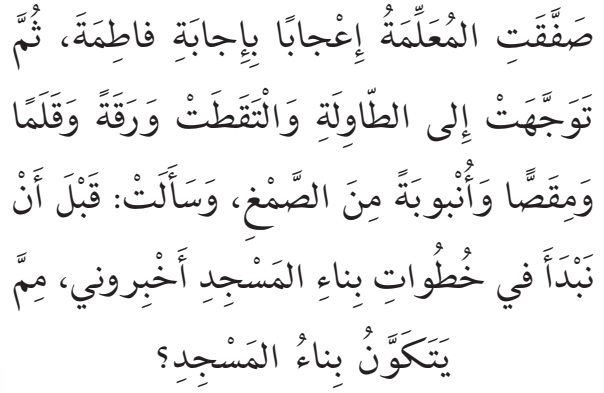 صَفَّقَتِ المُعَلِّمَةُ إِعْجابًا بِإِجابَةِ فاطِمَةَ، ثُمَّ
تَوَجَّهَتْ إِلى الطّاوِلَةِ وَالْتَقَطَتْ وَرَقَةً وَقَلَمًا
وَمِقَصًّا وَأُنْبوبَةً مِنَ الصَّمْغِ، وَسَأَلَتْ: قَبْلَ أَنْ
نَبْدَأَ في خُطُواتِ بِناءِ المَسْجِدِ أَخْبِروني، مِمَّ
يَتَكَوَّنُ بِناءُ المَسْجِدِ؟